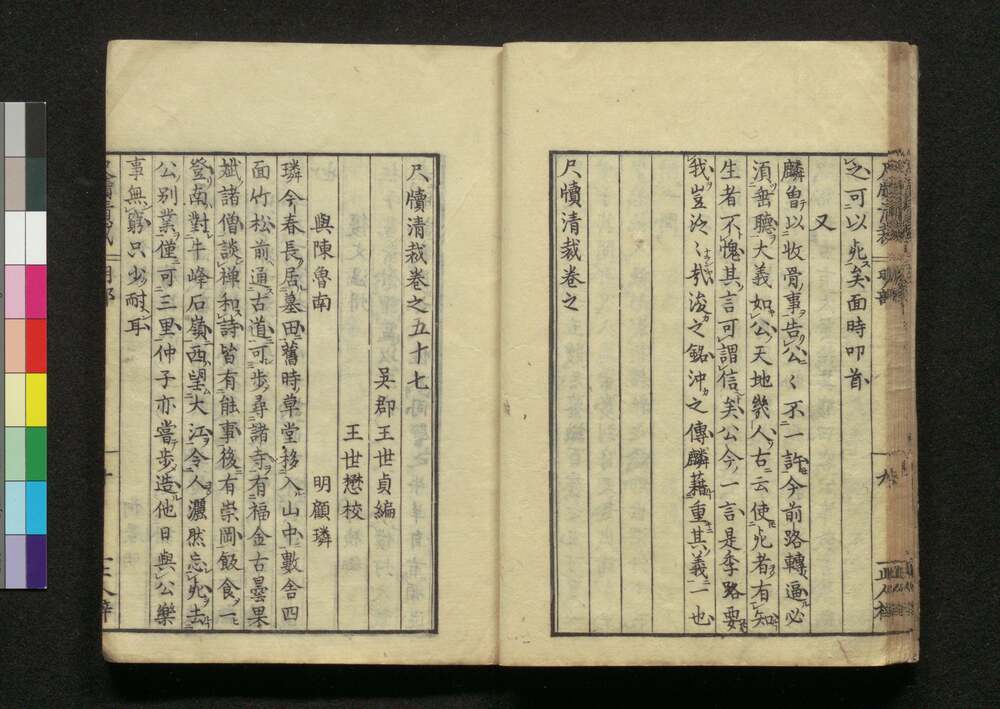 之可以死矣面時叩首
又
麟曽以收骨事告公〻不一許今前路轉逼必
須垂聽大義如公天地幾人古云使死者有知
生者不愧其言可謂信矣公今一言是季路要
我豈泛〻哉浚之銘沖之傳麟藉重其義一也
尺牘清裁卷之
尺牘清裁卷之五十七
吳郡王世貞編
王世懋校
與陳魯南
明顧璘
璘今春長居墓田舊時草堂移入山中數舎四
面竹松前通古道可歩尋諸寺有福金古曇果
娬諸僧談禅和詩皆有能事後有崇岡飯食一
登南對牛峰石嶺西望大江令人灑然忘死去
公別業僅可三里仲子亦嘗歩造他日與公樂
事無窮只少耐耳